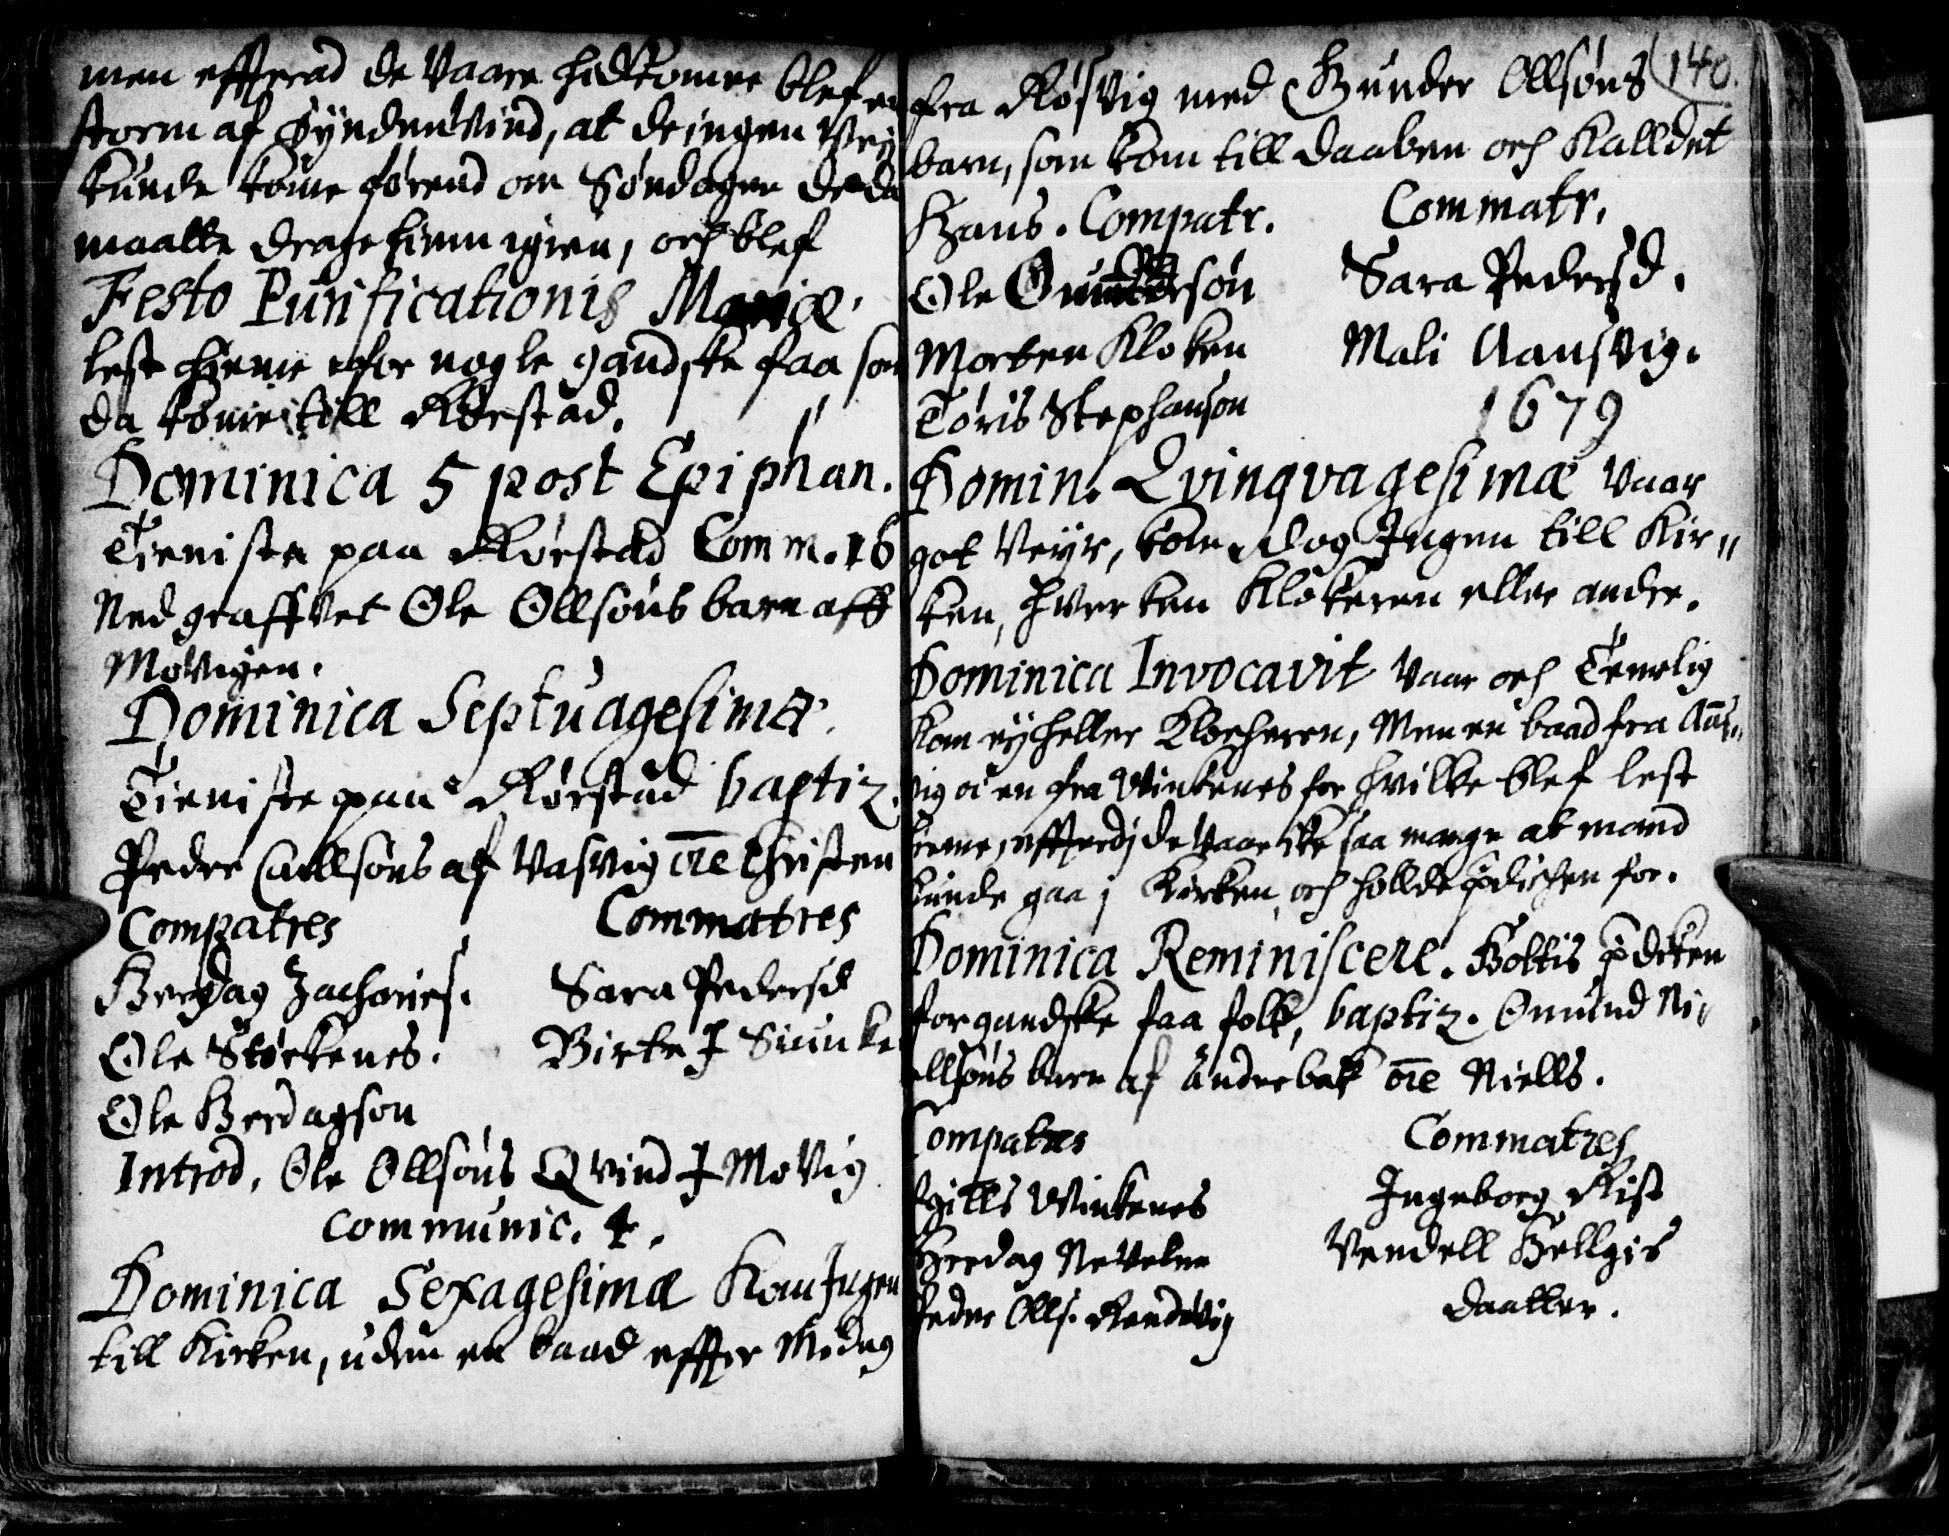 men effterad de Vaare hidkomne blef en
storm af Syndenvind, at de ingen Vej
kunde kome førend om Søndagen de da
maatte drage hiem igien, och blef
Festo Purificationis Mariæ.
lest hieme for nogle gandske faa som
da kome till Rørstad.
Dominica 5 post Epiphan.
Tieniste paa Rørstad Comm. 16
Nedgraffvet Ole Ollsøns barn aff
Movigen.
Dominica Septuagesima.
Tieniste paa Rørstad baptiz.
Peder Carllsøns af Vasvig õie Christen
Compatres Commatres
Herdag Zacharies. Sara Pedersd
Ole Størkenes. Birte I
Ole Herdagson
Introd. Ole Ollsøns Qvind I Movig
communic. 4.
Dominica Sexagesimæ Kom Ingen
till Kirken, uden en baad effter Midag
140.
fra Røsvig med Gunder Ollsøns
barn, som kom till Daaben och Kalldet
Hans. Compatr. Commatr.
Ole søn Sara Pedersd.
Morten Kloken Mali Aansvig.
Toris Stephanson 1679
Domin. Qvinqvagesimæ Vaar
got Veyr, kom dog Ingen till Kir„
ken, hverken Klokeren eller andre.
Dominica Invocavit Vaar och Temelig
Kom ey heller Klocheren, Men en baad fra Aans„
vig oc en fra Vinkenes for hvilke blef lest
hieme, effterdj de Vaar icke saa mange at mand
kunde gaa j Kirken, och hollde p̄dichen for.
Dominica Reminiscere. Holtis p̄dicken
for gandske faa folk, baptiz. Omund Ni„
ellsøns barn af Andrebak õie Niells.
Compatres Commatres
Egills Vinkenes Ingeborg Rist
Herdag Nevelne Vendell Hellgis
Peder Olls. Rendvig Daatter.